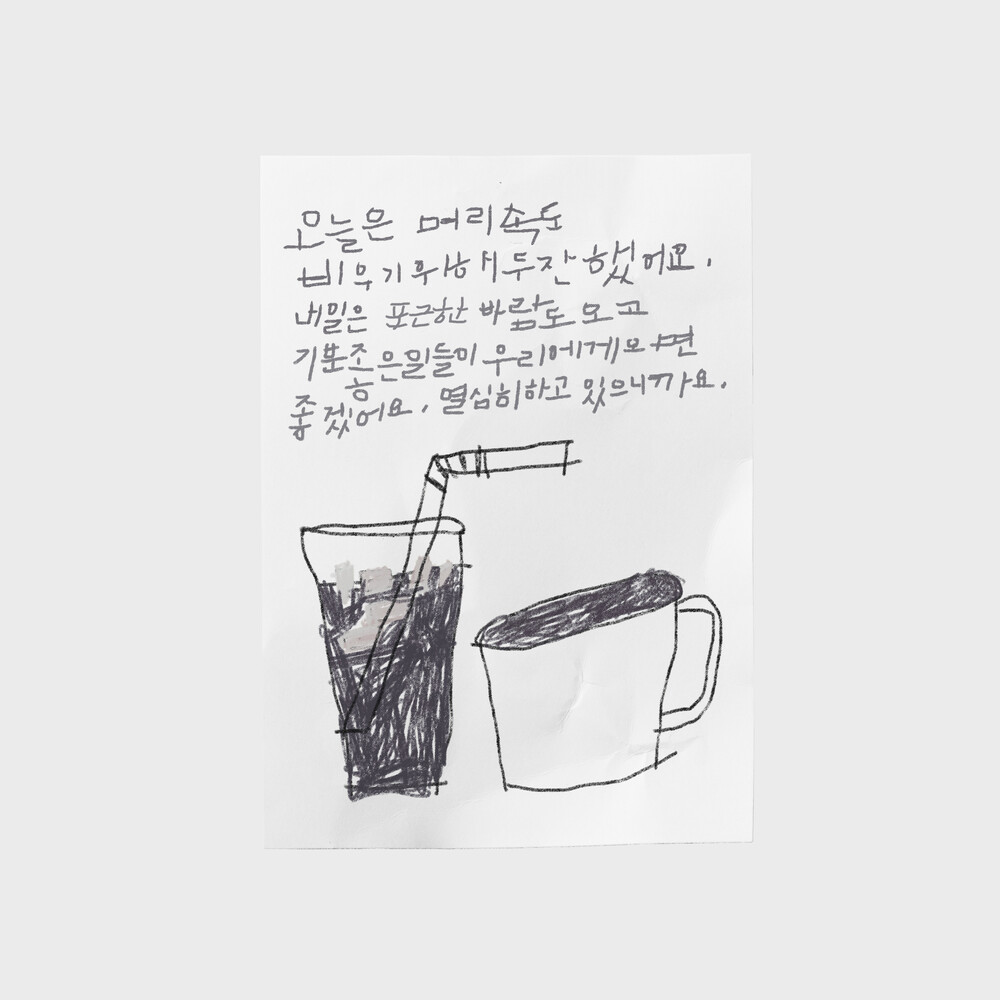 오늘은 머리속도
비우기위해서두잔 했어요.
내일은 포근한 바람도 오고
기분좋은일들이 우리에게오면
좋겠어요. 열심히하고 있으니까요.